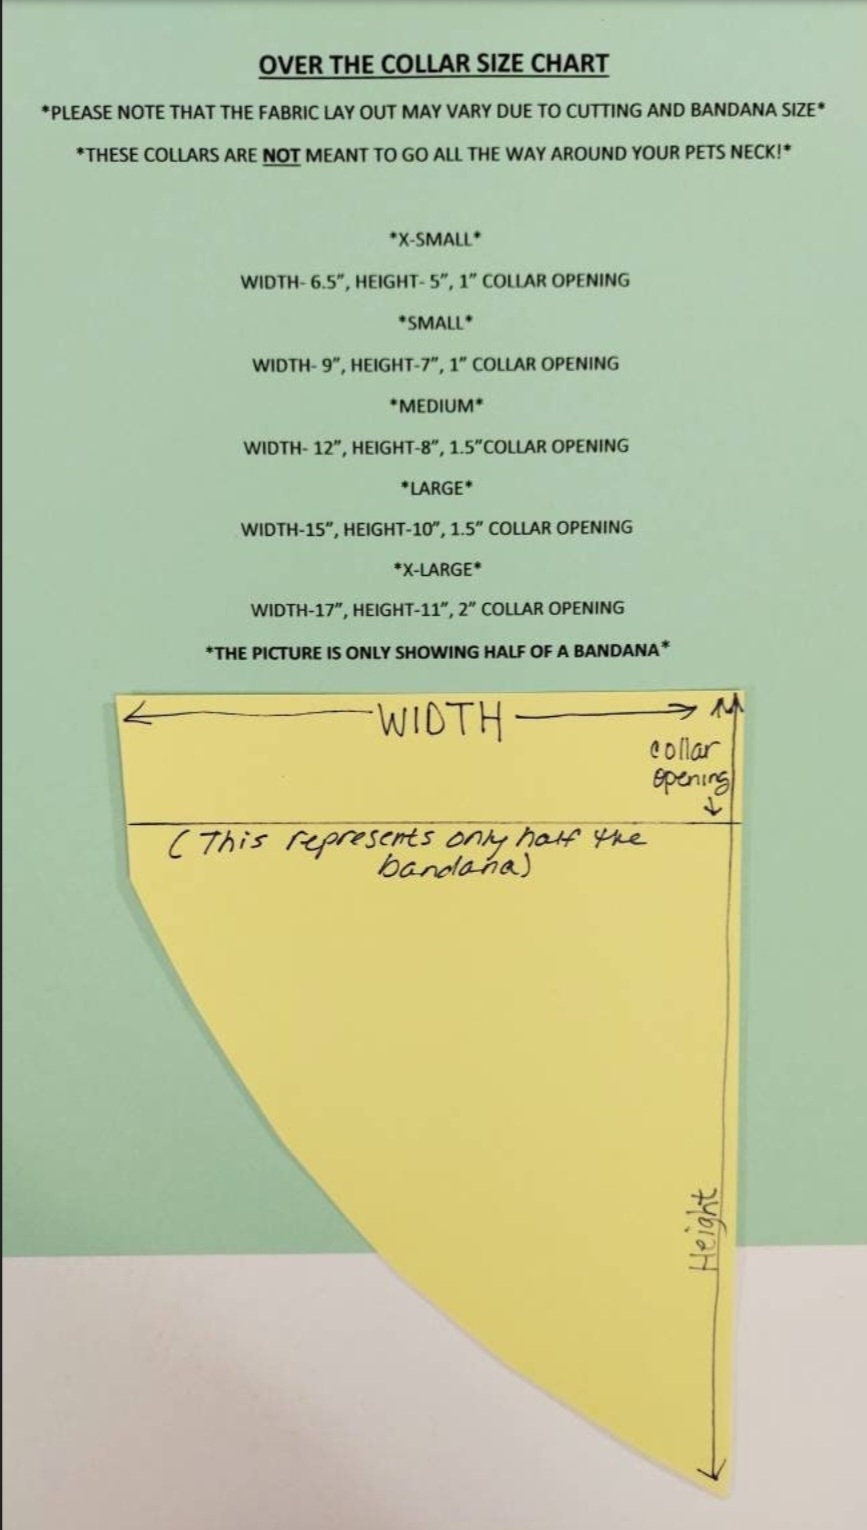 OVER THE COLLAR SIZE CHART
*PLEASE NOTE THAT THE FABRIC LAY OUT MAY VARY DUE TO CUTTING AND BANDANA SIZE*
*THESE COLLARS ARE NOT MEANT TO GO ALL THE WAY AROUND YOUR PETS NECK!*
*X-SMALL*
WIDTH- 6.5”, HEIGHT- 5”, 1” COLLAR OPENING
*SMALL*
WIDTH- 9”, HEIGHT-7”, 1” COLLAR OPENING
*MEDIUM*
WIDTH- 12”, HEIGHT-8”, 1.5”COLLAR OPENING
*LARGE*
WIDTH-15”, HEIGHT-10”, 1.5” COLLAR OPENING
*X-LARGE*
WIDTH-17”, HEIGHT-11”, 2” COLLAR OPENING
*THE PICTURE IS ONLY SHOWING HALF OF A BANDANA*
WIDTH
collar
opening
(This represents only half the
bandana)
Height